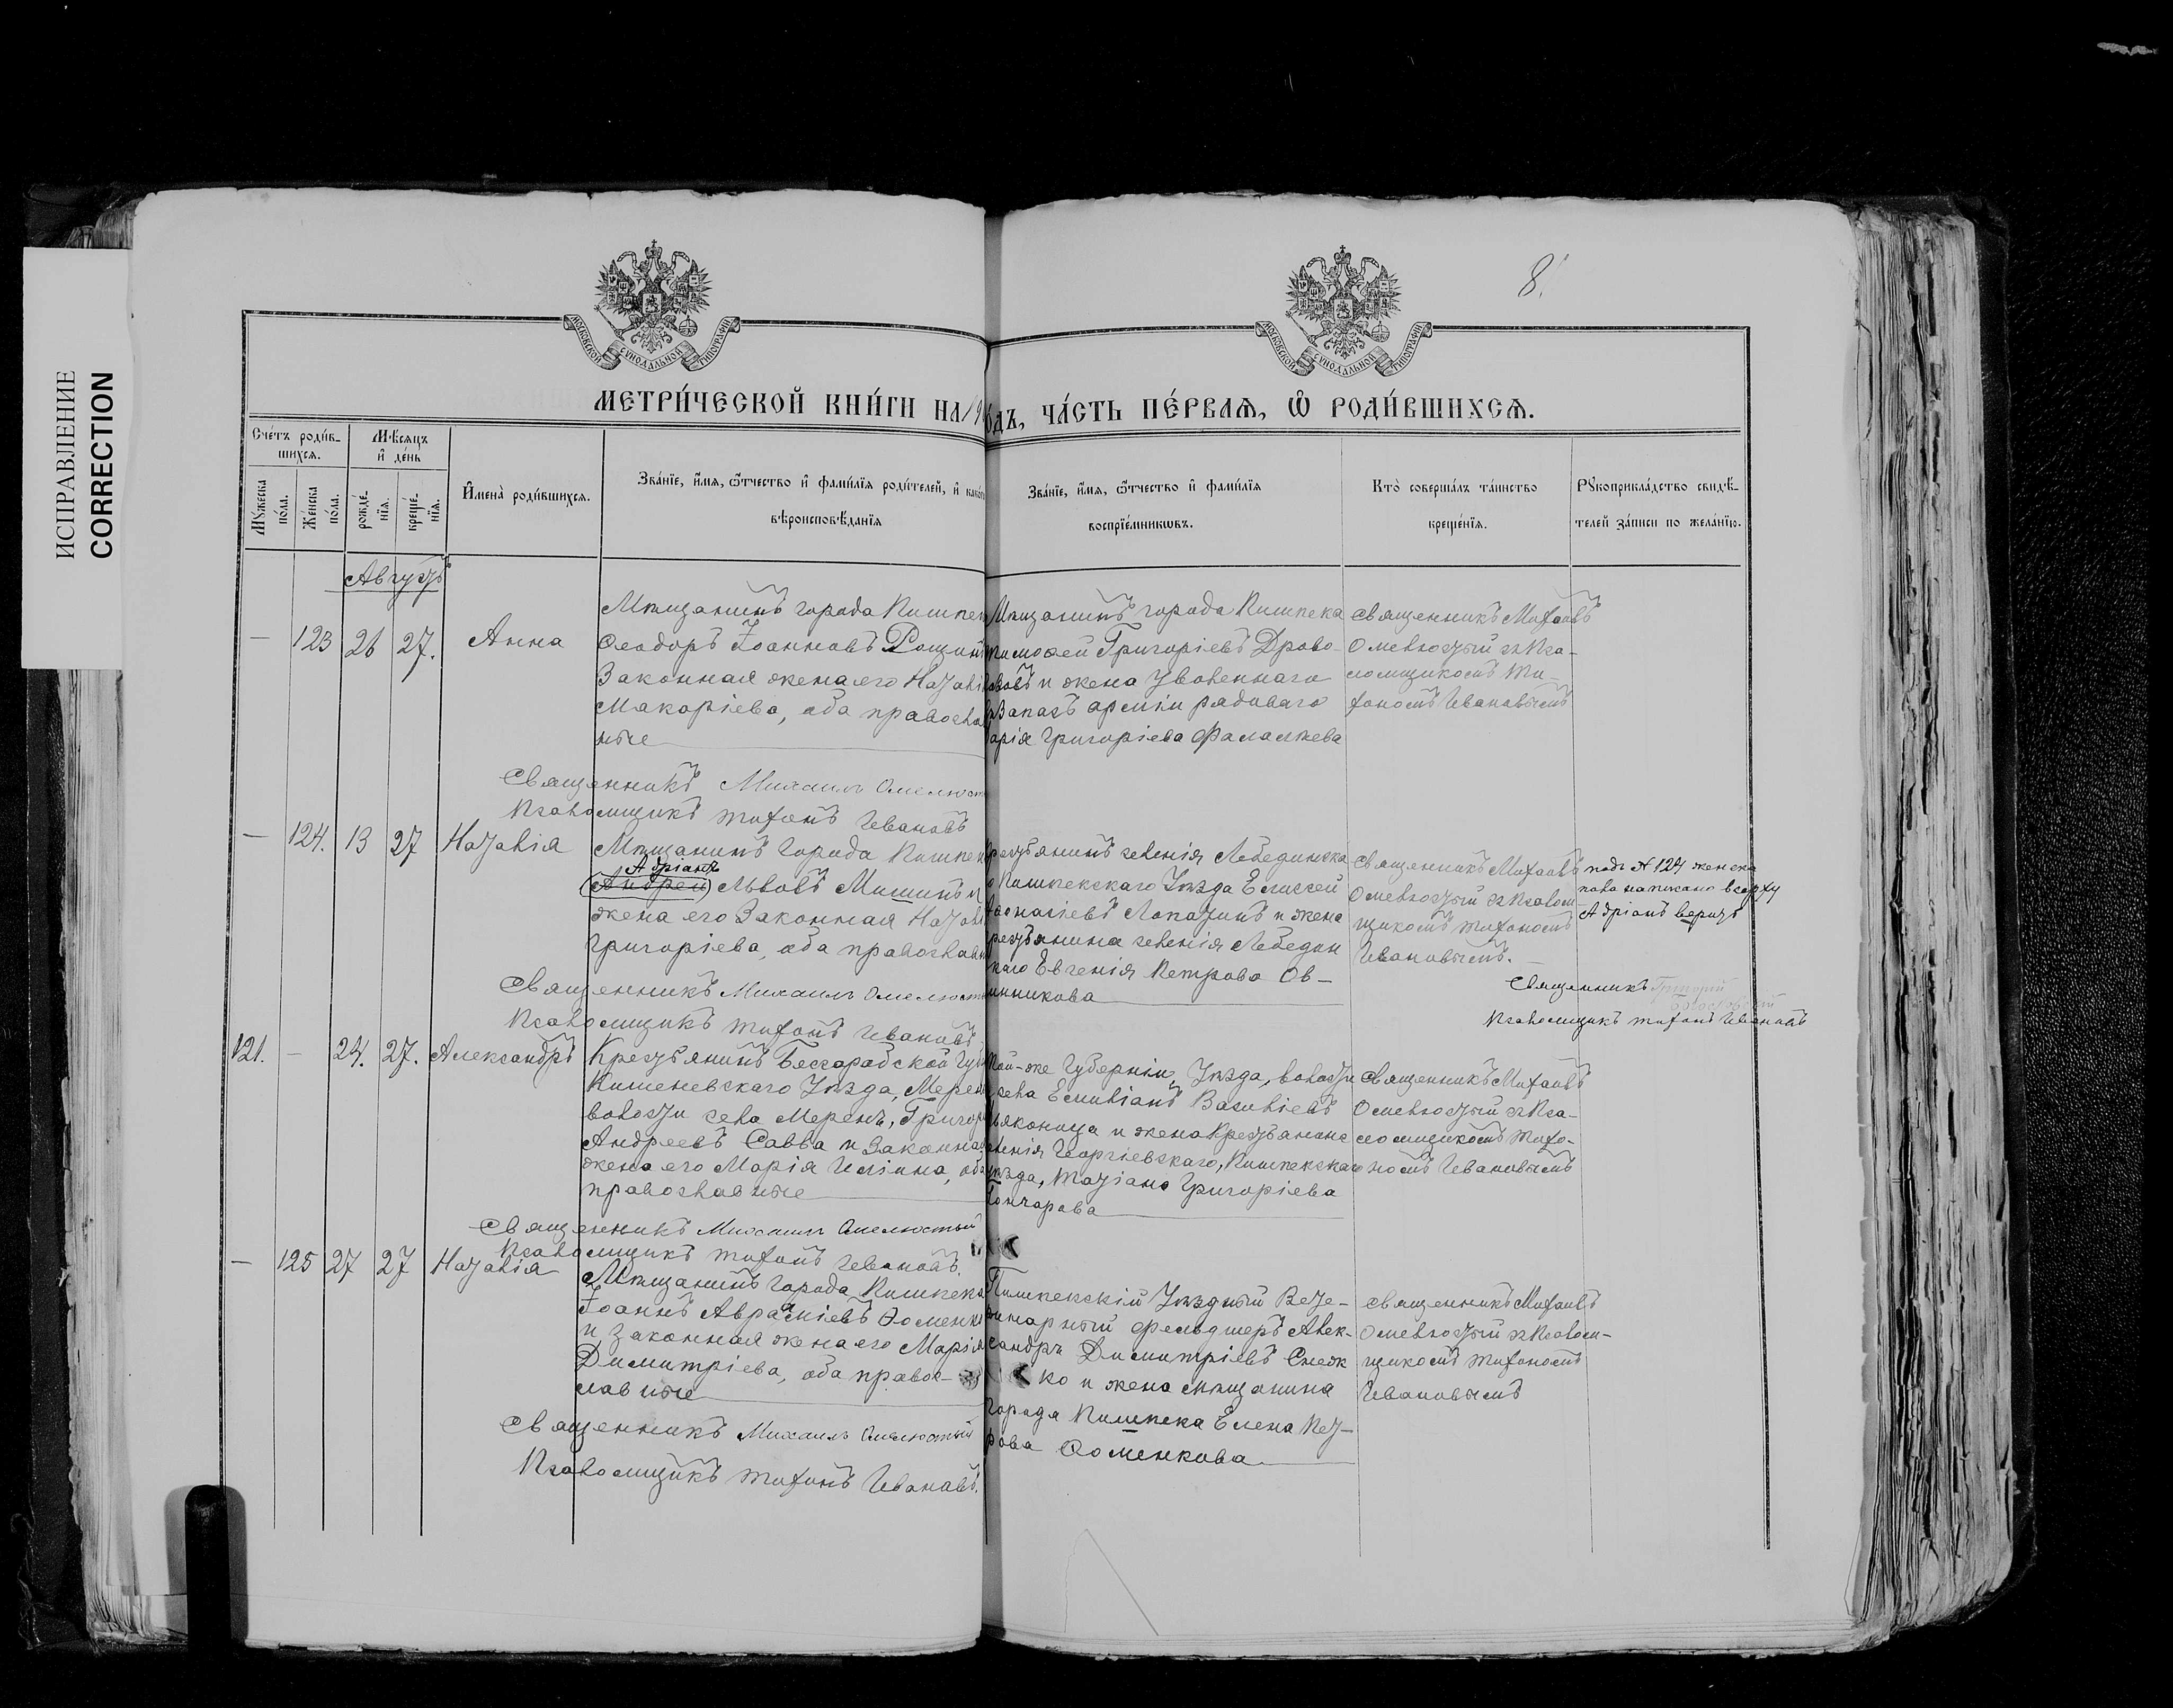 ИСПРАВЛЕНИЕ
CORRECTION
8.
МОСКОВСКОЙ СѴНОДАЛЬНОЙ ТИПОГРАФІИ
МОСКОВСКОЙ СѴНОДАЛЬНОЙ ТИПОГРАФІИ
МЕТРИ́ЧЕСКОЙ КНИ́ГИ НА 19
ОДЪ, ЧА́СТЬ ПЕ́РВАѦ, Ѽ РОДИ́ВШИХСѦ.
Сче́тъ роди́в-
шихся.
Мѣсяцъ
и҆ де́нь
Мꙋ́жеска
по́ла.
Же́нска
по́ла.
рожде́-
нїя.
креще́-
нїя.
И҆мена̀ роди́вшихся.
Зва́нїе, и҆́мя, ѻ҆́тчество и҆ фами́лїя роди́телей, и҆ како́г
вѣроисповѣ́данїя
Зва́нїе, и҆́мя, ѻ҆́тчество и҆ фами́лїя
воспрїе́мникωвъ.
Кто̀ соверша́лъ та́инство
креще́нїя.
Рꙋкоприкла́дство свидѣ́-
телей за́писи по жела́нїю.
Августъ
— 123 26 27. Анна
Мѣщанинъ города Пишпек
Ѳеодоръ Іоанновъ Рощинъ
Законная жена его Наталі
Макаріева, оба правосла
ные
Мѣщанинъ города Пишпека
Тимоѳей Григоріевъ Дрово-
и жена уволеннаго
въ запасъ арміи рядоваго
арія Григоріева Фаламеева
Священникъ Михаилъ
Омелюстый съ Пса-
ломщикомъ Ти-
хономъ Ивановымъ
Священникъ Михаилъ Омелюст
Псаломщикъ Тихонъ Ивановъ
— 124. 13 27 Наталія
Мѣщанинъ города Пишпек
Адріанъ
(Андрей) Львовъ Мишинъ и
жена его законная Натал
Григоріева, оба православн
рестьянинъ селенія Лебединска
о Пишпекскаго Уѣзда Елиссей
Аѳонасіевъ Лопатинъ и жена
рестьянина селенія Лебедин
каго Евгенія Петрова Ов-
инникова
Священникъ Михаилъ
Омелюстый съ Псалом-
щикомъ Тихономъ
Ивановымъ.
подъ № 124 женска
пола написано вверху
Адріанъ верить
Священникъ Григорій
Псаломщикъ Тихонъ Ивановъ
Священникъ Михаилъ Омелюсты
Псаломщикъ Тихонъ Ивановъ
121. — 24. 27. Александръ
Крестьянинъ Бессарабской Губ
Кишеневскаго Уѣзда, Мерен
волости села Меренъ, Григор
Андреевъ Савва и Законная
жена его Марія Иліина, оба
православные
Той-же Губерніи, Уѣзда, волости
села Емиліанъ Василіевъ
Дьяконица и жена Крестьянина
еленія Георгіевскаго, Пишпекскаго
уѣзда, Татіана Григоріева
Гончарова
Священникъ Михаилъ
Омелюстый съ Пса-
ломщикомъ Тихо-
номъ Ивановымъ
Священникъ Михаилъ Омелюстый
Псаломщикъ Тихонъ Ивановъ.
— 125 27 27 Наталія
Мѣщанинъ города Пишпека
Іоаннъ Авраміевъ Ѳоменко
и законная жена его Марія
Димитріева, оба правос-
лавные
Пишпекскій Уѣздный Вете-
ринарный фельдшеръ Алек-
сандръ Димитріевъ Снеж
ко и жена мѣщанина
города Пишпека Елена Пет-
рова Ѳоменкова
Священникъ Михаилъ
Омелюстый съ Псалом-
щикомъ Тихономъ
Ивановымъ
Священникъ Михаилъ Омелюстый
Псаломщикъ Тихонъ Ивановъ.